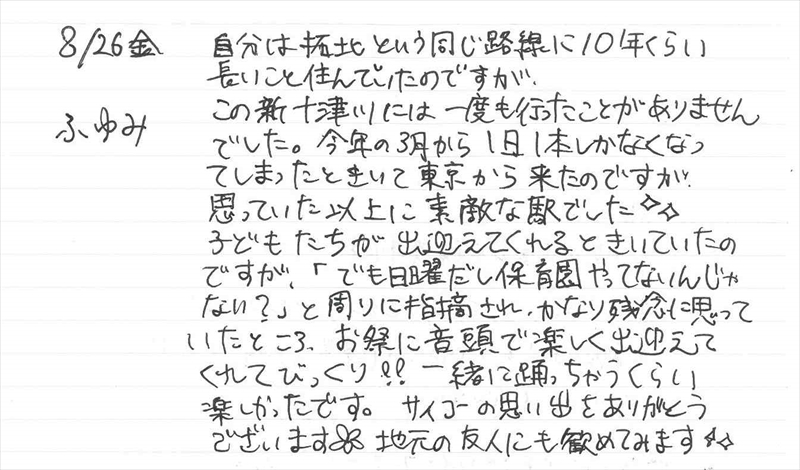 8/26金
ふゆみ
自分は拓北という同じ路線に10年くらい
長いこと住んでいたのですが、
この新十津川には一度も行ったことがありません
でした。今年の3月から1日1本しかなくなっ
てしまったときいて東京から来たのですが、
思っていた以上に素敵な駅でした✧✧
子どもたちが出迎えてくれるときいていたの
ですが、「でも日曜だし保育園やってないんじゃ
ない?」と周りに指摘され、かなり残念に思って
いたところ、お祭に音頭で楽しく出迎えて
くれてびっくり!!一緒に踊っちゃうくらい
楽しかったです。サイコーの思い出をありがとう
ございます 地元の友人にも歓めてみます✧✧